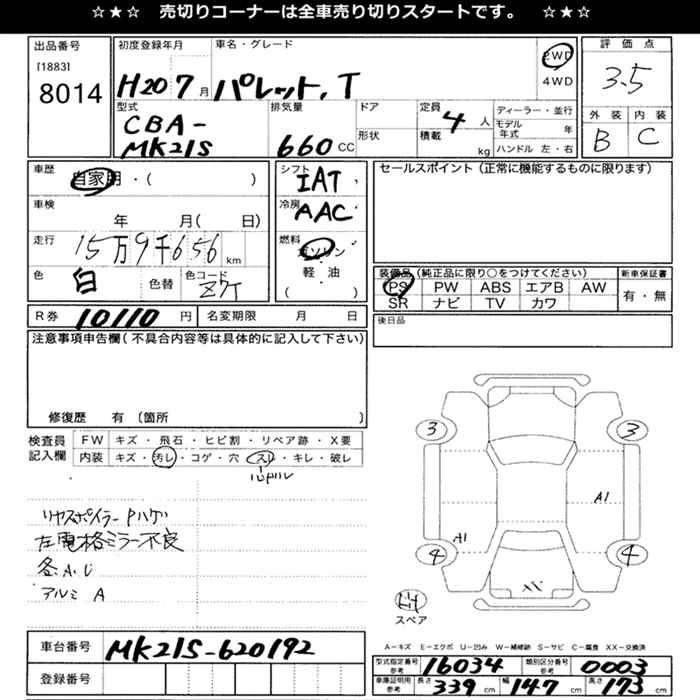 ☆★☆ 売切りコーナーは全車売り切りスタートです。 ☆★☆
出品番号
[1883]
8014
初度登録年月
H20 7月
車名・グレード
パレット, T
2WD
4WD
評価点
3.5
外装 内装
B C
型式
CBA-
MK21S
排気量
660 CC
ドア
形状
定員
4人
積載
kg
ディーラー・並行
モデル年式 年
ハンドル 左・右
車歴
自家用・( )
車検
年 月( 日)
走行
15万9千656 km
色
白
色替
色コード
Z7T
シフト
IAT
冷房
AAC
燃料
ガソリン
軽油
( )
セールスポイント(正常に機能するものに限ります)
装備品(純正品に限り○をつけてください)
PS PW ABS エアB AW
SR ナビ TV カワ
新車保証書
有・無
後日品
R券 10110 円
名変期限 月 日
注意事項申告欄(不具合内容等は具体的に記入して下さい)
修復歴 有〔箇所 〕
検査員
記入欄
FW キズ・飛石・ヒビ割・リペア跡・X要
内装 キズ・汚レ・コゲ・穴・スレ・キレ・破レ
リヤスポイラー Pハゲ
左電格ミラー不良
各A.U
アルミ A
3
3
A1
A1
4
4
XX
スペア
A-キズ E-エクボ U-凹み W-補修跡 S-サビ C-腐食 XX-交換済
車台番号 MK21S-620192
登録番号
型式指定番号
参考
16034
類別区分番号
参考
0003
車庫証明用
参考
長さ 339 cm 幅 147 cm 高さ 173 cm